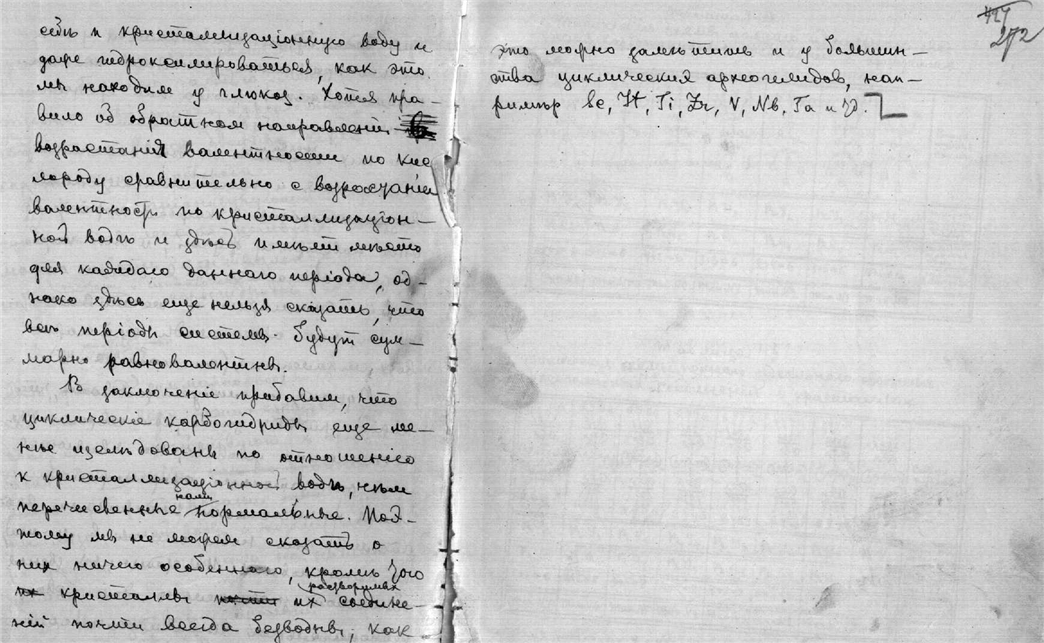 себѣ и кристаллизаціонную воду и
даже гидроксилироваться, какъ это
мы находимъ у глюкоз. Хотя пра-
вило об обратном направленіи
возрастанія валентности по кис
лороду сравнительно с возрастаніем
валентности по кристаллизаціон-
ной водѣ и здѣсь имѣет мѣсто
для каждаго даннаго періода, од-
нако здѣсь еще нельзя сказать, что
всѣ періоды системы будут сум-
марно равновалентны.
В заключеніе прибавим, что
циклическіе карбогидриды еще ме-
нѣе изслѣдованы по отношенію
к кристаллизаціонной водѣ, чѣм
перечисленные нами нормальные. Поэ-
тому мы не можем сказать о
них ничего особеннаго, кромѣ того
кристаллы их растворимых соедине-
ній почти всегда безводны, как
427
272
это можно замѣтить и у большин-
ства циклических археогелидов, нап-
римѣр Sc, Yt, Ti, Zr, V, Nb, Ta и др.